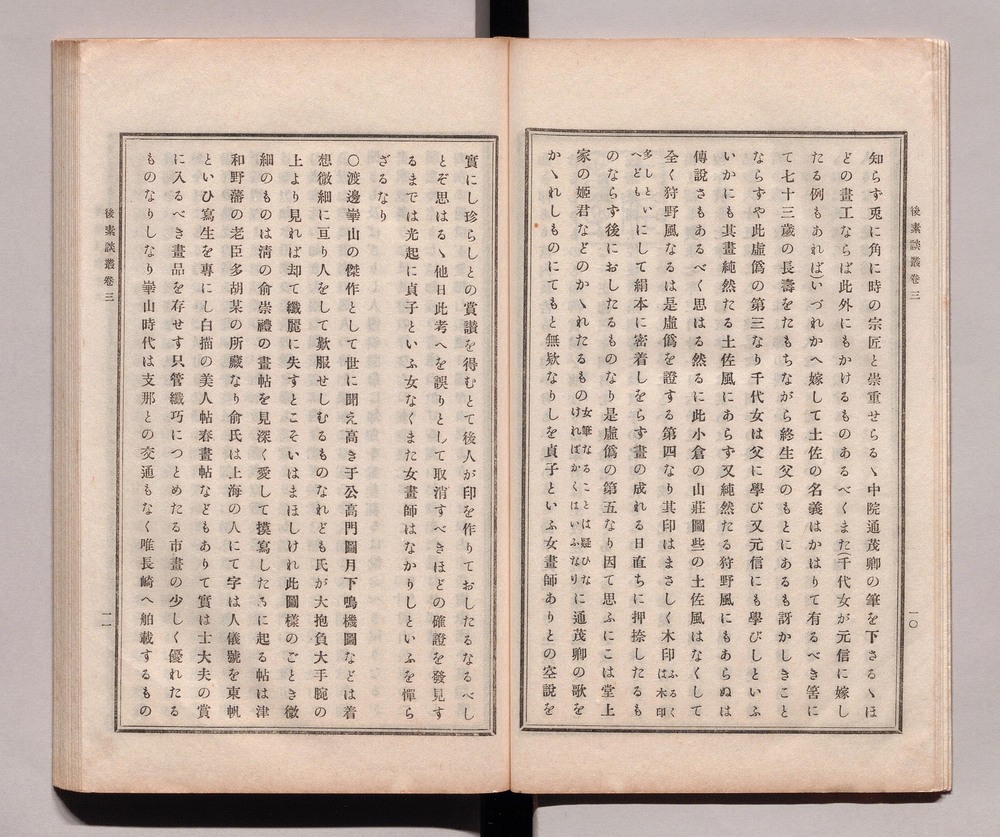 後素談叢卷三
一〇
知らす兎に角に時の宗匠と崇重せらるヽ中院通茂卿の筆を下さるヽほ
どの畫工ならば此外にもかけるものあるべくまた(千代女が元信に嫁し
たる例もあれば)いづれかへ嫁して土佐の名義はかはりて有るべき筈に
て七十三歲の長壽をたもちながら終生父のもとにあるも訝かしきこと
ならすや此虛僞の第三なり千代女は父に學び又元信にも學びしといふ
いかにも其畫純然たる土佐風にあらす又純然たる狩野風にもあらぬは
傳說さもあるべく思はる然るに此小倉の山莊圖些の土佐風はなくして
全く狩野風なるは是虛僞を證する第四なり其印はまさしく木印ふるくは木印
多しといへどもにして絹本に密着しをらす畫の成れる日直ちに押捺したるも
のならす後におしたるものなり是虛僞の第五なり因て思ふにこは堂上
家の姬君などのかヽれたるもの女筆なることは疑ひなければかくはいふなりに通茂卿の歌を
かヽれしものにてもと無欵なりしを貞子といふ女畫師ありとの空說を
實にし珍らしとの賞讃を得むとて後人が印を作りておしたるなるべし
とぞ思はるヽ他日此考へを誤りとして取消すべきほどの確證を發見す
るまでは光起に貞子といふ女なくまた女畫師はなかりしといふを憚ら
ざるなり
〇渡邊崋山の傑作として世に聞え高き于公高門圖月下鳴機圖などは着
想微細に亘り人をして歎服せしむるものなれども氏が大抱負大手腕の
上より見れば却て纖麗に失すとこそいはまほしけれ此圖樣のごとき微
細のものは淸の俞崇禮の畫帖を見深く愛して摸寫したるに起る帖は津
和野藩の老臣多胡某の所藏なり俞氏は上海の人にて字は人儀號を東帆
といひ寫生を專にし白描の美人帖春畫帖などもありて實は士大夫の賞
に入るべき畫品を存せす只管纖巧につとめたる市畫の少しく優れたる
ものなりしなり崋山時代は支那との交通もなく唯長崎へ舶載するもの
後素談叢卷三
一一